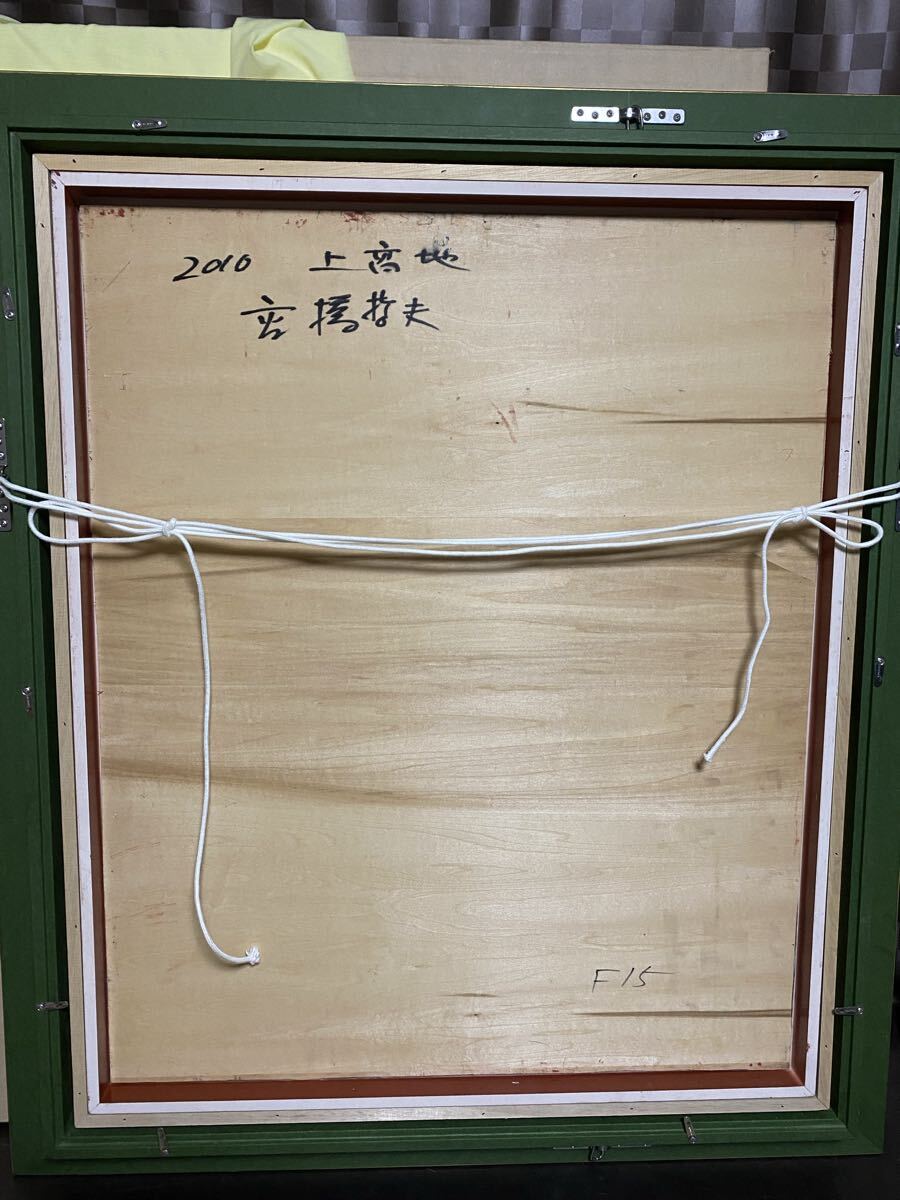 2010 上高地
高橋哲夫
F15